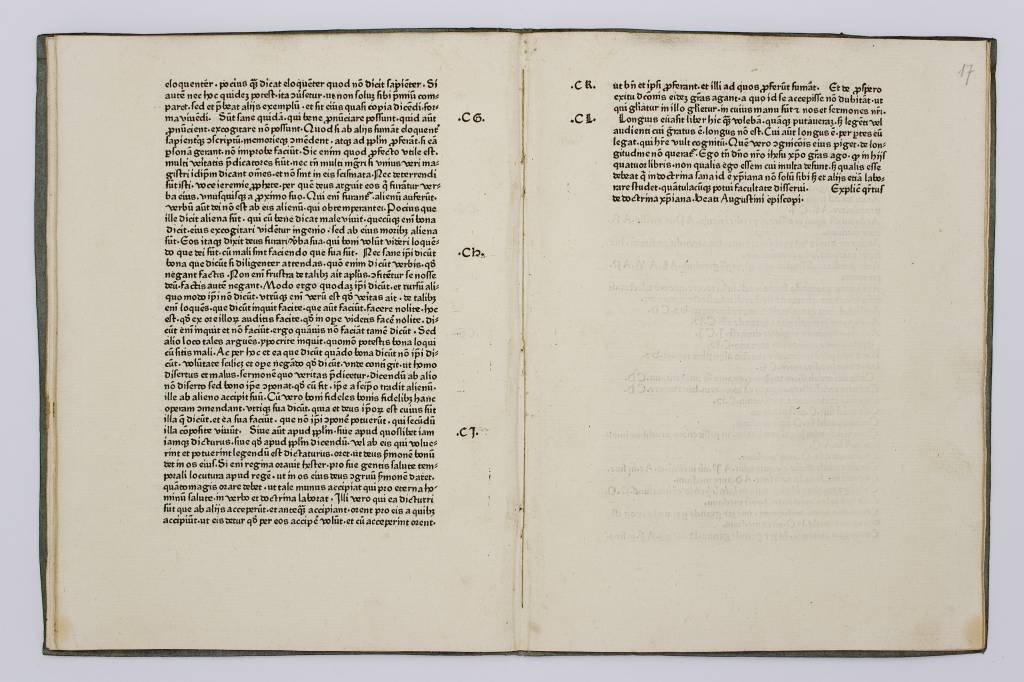 eloquenter · pocius q̃ȝ dicat eloquẽter quod nõ dicit sapiẽter. Si
autẽ nec hoc quidez potest · ita cũsetur · ut non soluz sibi p̃miũ com-
paret · sed et p̃beat alijs exemplũ · et sit eius quasi copia dicẽdi · for-
ma viuẽdi. Sũt sane quidã · qui bene pñuciare possunt · quid aũt
·C G·
pñuncient · excogitare nõ possunt · Quod si ab alijs sumãt eloquent̃
sapientq̃ ↄscriptũ · memorieq̃ ↄmẽdent · atq̃ ad pplm̃ pferat · si eã
psonã gerant · nõ improbe faciũt · Sic enim quod pfecto vtile est ·
multi veritatis p̃dicatores fiũt · nec tñ multi mgr̃i si vnius veri ma-
gistri idipm̃ dicant om̃es · et nõ sint in eis scismata · Nec deterrendi
sũt isti · voce ieremie pphete · per quẽ deus arguit eos q̃ furãtur ver-
ba eius · vnusquisq̃ a pximo suo · Qui eni furant̃ · alienũ auferũt ·
verbũ aũt dei nõ est ab eis alienũ · qui obtemperant ei · Pocius que
ille dicit aliena sũt · qui cũ bene dicat male viuit · quecũq̃ eni bona
dicit · eius excogitari vident̃ur ingenio · sed ab eius moribȝ aliena
sũt · Eos itaq̃ dixit deus furari v̓ba sua · qui boni volũt videri loquẽ-
do que dei sũt · cũ mali sint faciendo que sua sũt. Nec sane ip̃i dicũt
·C h·
bona que dicũt si diligenter attendas · quõ enim dicũt verbis · qd̓
negant factis · Non eni frustra de talibȝ ait apl̃us · ↄfitẽtur se nosse
deũ · factis autẽ negant · Modo ergo quodaz ip̃i dicũt · et rursũ ali-
quo modo ip̃i nõ dicũt · vtrũq̃ eni verũ est qd̓ veritas ait · de talibȝ
eni loquẽs · que dicũt inquit facite · que aũt faciũt · facere nolite · hoc
est · qd̓ ex ore illoȝ auditis facite · qd̓ in ope videtis facẽ nolite · di-
cũt eni inquit et nõ faciũt · ergo quãuis nõ faciãt tamẽ dicũt · Sed
alio loco tales arguẽs · ypocrite inquit · quomõ potestis bona loqui
cũ sitis mali · Ac per hoc et ea que dicũt quãdo bona dicũt nõ ip̃i di-
cũt · volũtate scilicȝ et ope negãdo qd̓ dicũt · vnde contigit · ut homo
disertus et malus · sermonẽ quo veritas p̃dicetur · dicendũ ab alio
nõ diserto sed bono ip̃e ↄponat · qd̓ cũ fit · ip̃e a seip̃o tradit alienũ ·
ille ab alieno accipit suũ · Cũ vero boni fideles bonis fidelibȝ hanc
operam ↄmendant · vtriq̃ sua dicũt · quia et deus ip̃oȝ est cuius sũt
illa q̃ dicũt · et ea sua faciũt · que nõ ip̃i ↄponẽ potuerũt · qui secũdũ
illa cõposite viuũt. Siue aũt apud pplm̃ · siue apud quoslibet iam
·C J·
iamq̃ dicturus · siue qd̓ apud pplm̃ dicendũ · vel ab eis qui volue-
rint et potuerint legendũ est dictaturus · oret · ut deus s̓monẽ bonũ
det in os eius · Si eni regina orauit hester · pro sue gentis salute tem-
porali locutura apud regẽ · ut in os eius deus ↄgruũ s̓monẽ daret ·
quãto magis orare debet · ut tale munus accipiat qui pro eterna ho-
minũ salute · in verbo et doctrina laborat · Illi vero qui ea dicturi
sũt que ab alijs acceperũt · et anteq̃ȝ accipiant · orent pro eis a quibȝ
accipiũt · ut eis detur qd̓ per eos accipẽ volũt · et cũ acceperint orent ·
17
·C K·
ut bñ et ip̃i pferant · et illi ad quos pferũt sumãt. Et de pspero
exitu dictionis eidez gr̃as agant · a quo id se accepisse nõ dubitãt · ut
qui gl̃iatur in illo gl̃ietur · in cuius manu sũt ⁊ nos et sermones nr̃i.
·C L·
Longius euasit liber hic q̃ȝ volebã · quãq̃ȝ putaueraȝ · s̓ legẽti vel
audienti cui gratus ẽ · longus nõ est · Cui aũt longus ẽ · per ptes eũ
legat · qui h̓re vult cognitũ · Quẽ vero ↄgnicõis eius piget · de lon-
gitudine nõ querat̃ · Ego tñ dñõ nr̃o ih̃esu xp̃o gr̃as ago · q̃ in hijs
quatuor libris · non qualis ego essem cui multa desunt · s̓ qualis esse
debeat q̃ in doctrina sana id ẽ xp̃iana nõ solũ sibi s̓ et alijs etiã labo-
rare studet · quãtulacũq̃ potui facultate disserui. Explic̃ q̃rtus
de doctrina xp̃iana · beati Augustini episcopi ·